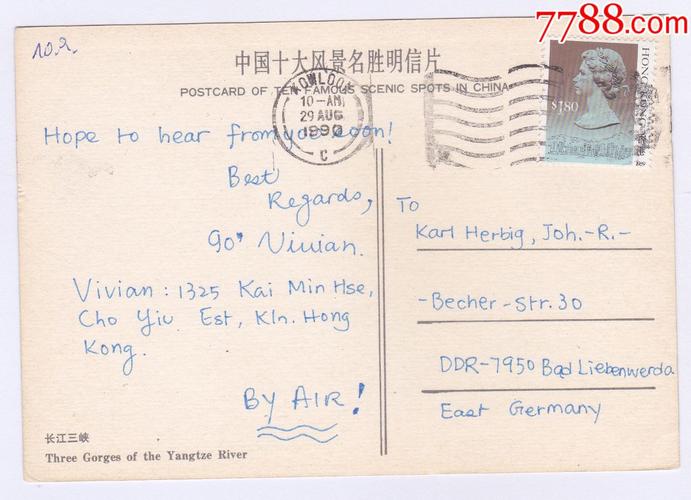 7788.com
10.2.
中国十大风景名胜明信片
POSTCARD OF TEN FAMOUS SCENIC SPOTS IN CHINA
KOWLOON
10-AM
29 AUG
1990
C
$1.80
HONG KONG 香港
Hope to hear from you soon!
Best
Regards,
90' Vivian.
Vivian : 1325 Kai Min Hse,
Cho Yiu Est, Kln. Hong
Kong.
BY AIR!
To
Karl Herbig, Joh.-R.-
-Becher-Str. 30
DDR-7950 Bad Liebenwerda
East Germany
长江三峡
Three Gorges of the Yangtze River